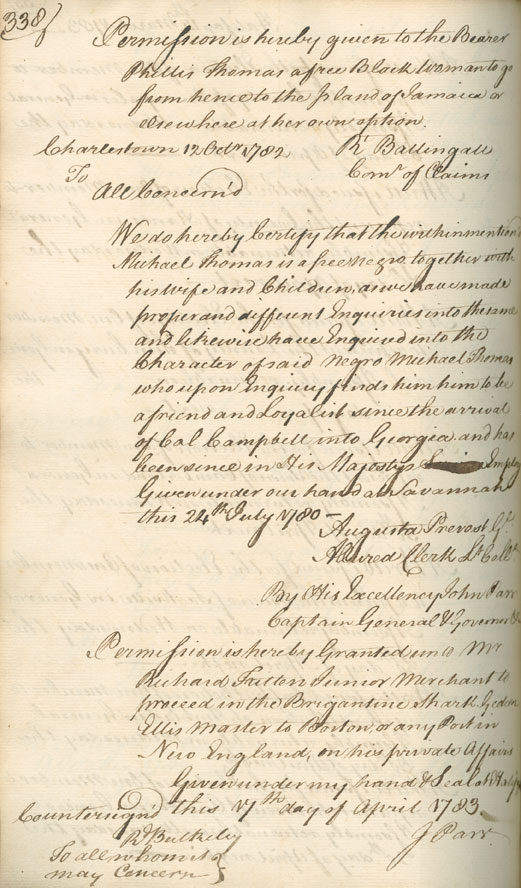 338
Permission is hereby given to the Bearer
Phillis Thomas a free Black Woman to go
from hence to the Island of Jamaica or
elsewhere at her own option.
Charlestown 12 Octr 1782 Rt Ballingall
Comr of Claims
To
All Concern'd
We do hereby Certify that the within mention'd
Michael Thomas is a free negro, together with
his wife and Children, as we have made
proper and different Enquiries into the same
and likewise have Enquired into the
Character of said Negro Michael Thomas
who upon Enquiry finds him him to be
a friend and Loyalist since the arrival
of Col Campbell into Georgia and has
been since in His Majestys Employ
Given under our hand at Savannah
this 24th July 1780 —
Augusta Prevost
Allured Clerk Lt Coll
By His Excellency John Parr
Captain General & Governor &
Permission is hereby Granted unto Mr
Richard Fatton Junior Merchant to
proceed in the Brigantine Shark,
Ellis Master to Boston, or any Port in
New England, on his private Affairs
Given under my hand & Seal at
this 17th day of April 1783.
Countersign'd
Rd Bulkeley J Parr.
To all whom it
may Concern